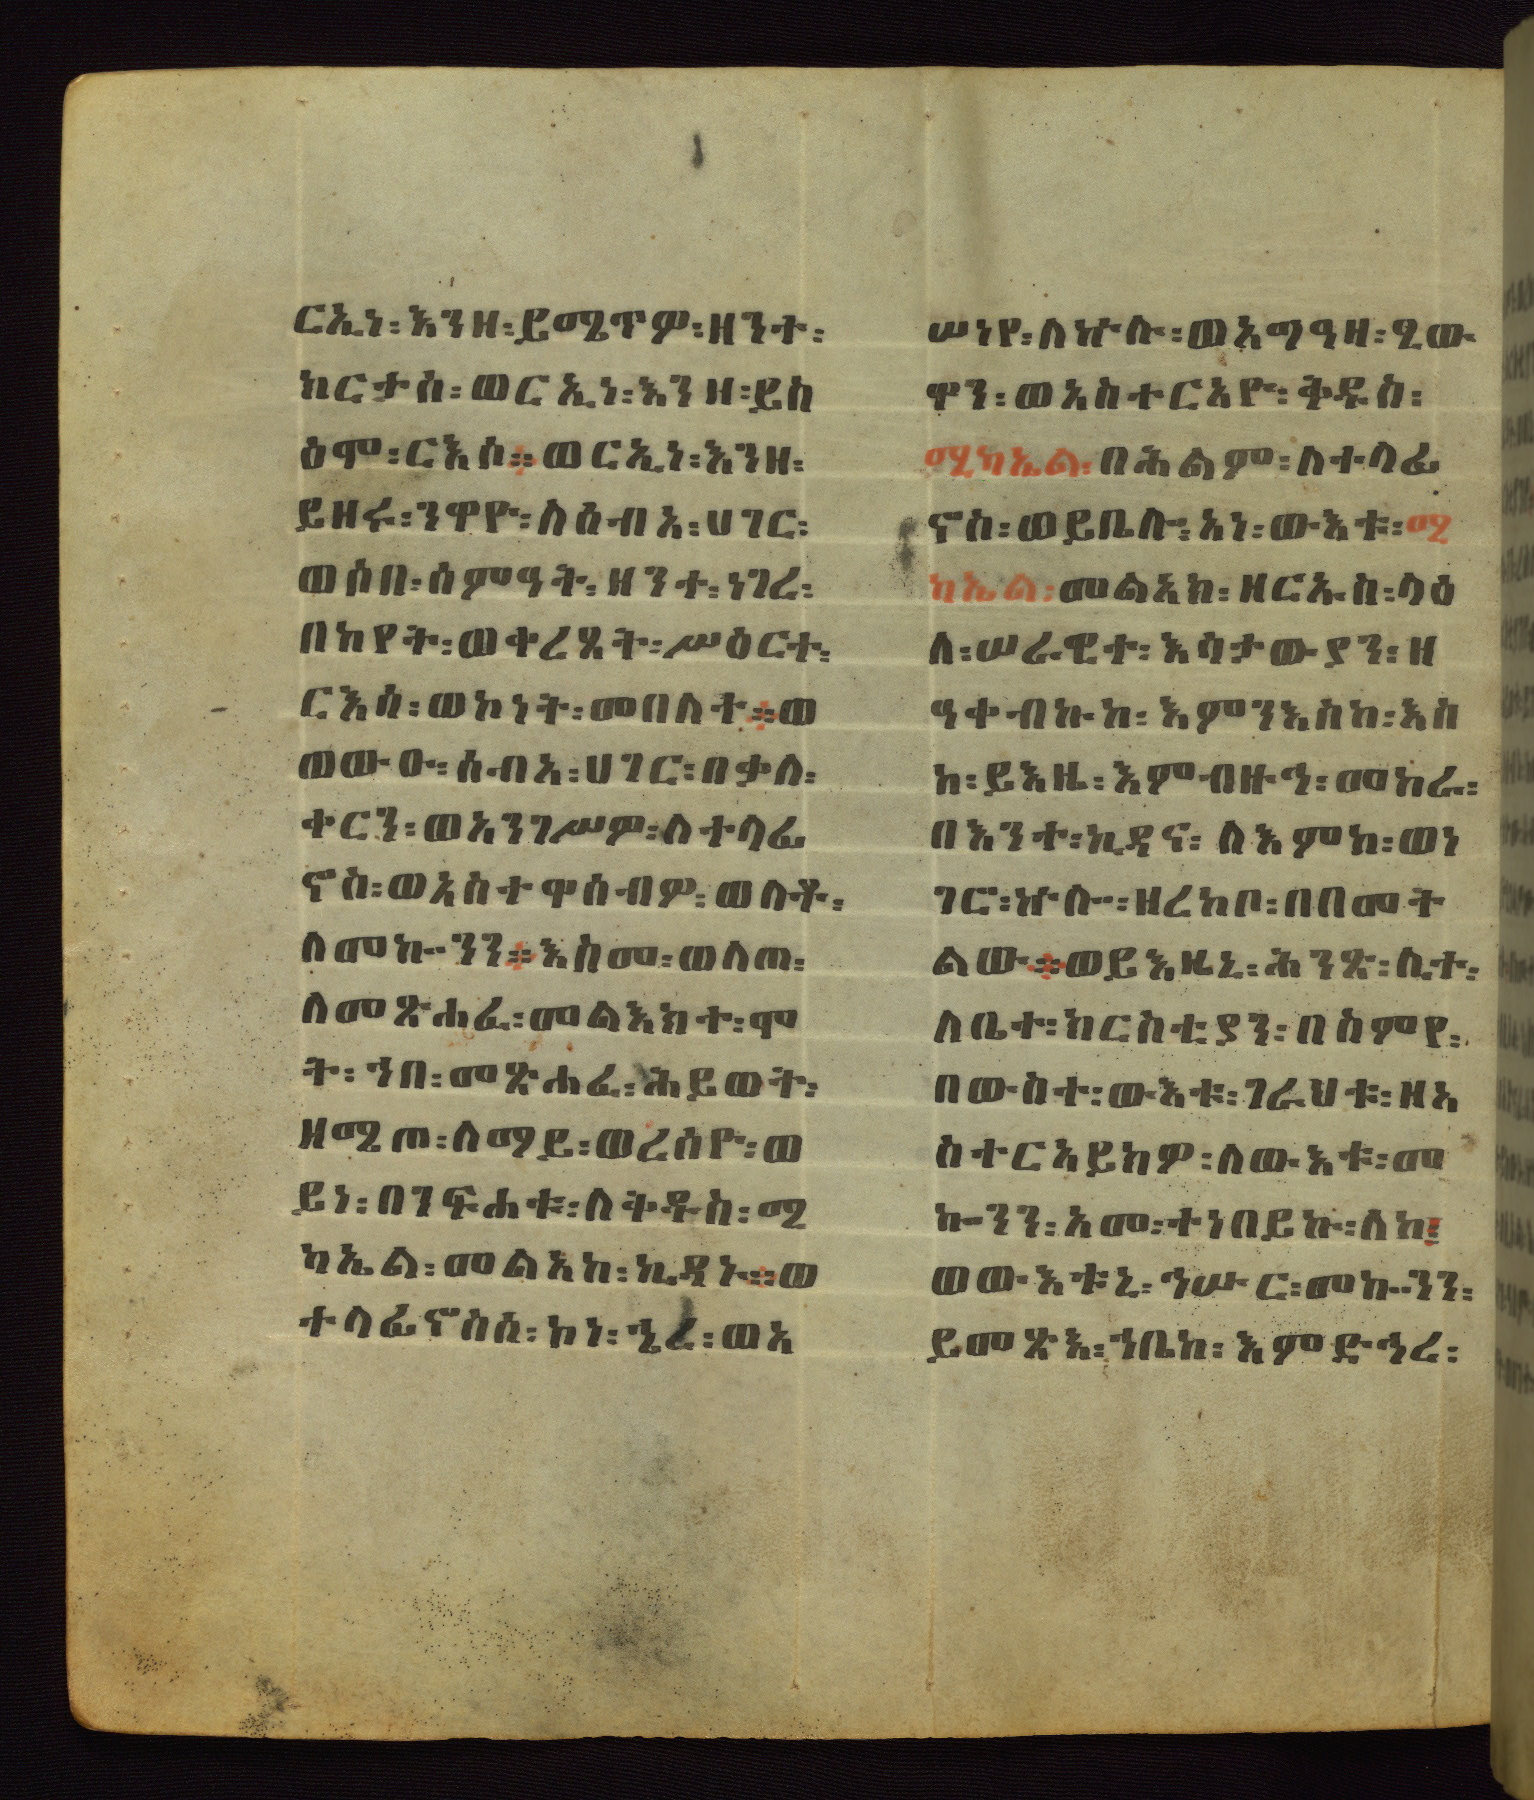 ርኢነ፡እንዘ፡ይሜጥዎ፡ዘንተ፡
ክርታሰ፡ወርኢነ፡እንዘ፡ይስ
ዕሞ፡ርእሰ።ወርኢነ፡እንዘ፡
ይዘሩ፡ንዋዮ፡ለሰብአ፡ሀገር፡
ወሶበ፡ሰምዓት፡ዘንተ፡ነገረ፡
በከየት፡ወቀረጸት፡ሥዕርተ፡
ርእሳ፡ወኮነት፡መበለተ።ወ
ወውዑ፡ሰብአ፡ሀገር፡በቃለ፡
ቀርን፡ወአንገሥዎ፡ለተላፊ
ኖስ፡ወአስተዋሰብዎ፡ወለቶ፡
ለመኰንን።እስመ፡ወለጠ፡
ለመጽሐፈ፡መልእክተ፡ሞ
ት፡ኀበ፡መጽሐፈ፡ሕይወት፡
ዘሜጠ፡ለማይ፡ወረሰዮ፡ወ
ይነ፡በንፍሐቱ፡ለቅዱስ፡ሚ
ካኤል፡መልአከ፡ኪዳኑ።ወ
ተላፊኖስሰ፡ኮነ፡ኄረ፡ወአ
ሠነየ፡ለኵሉ፡ወአግዓዘ፡ፂው
ዋን፡ወአስተርአዮ፡ቅዱስ፡
ሚካኤል፡በሕልም፡ለተላፊ
ኖስ፡ወይቤሎ፡አነ፡ውእቱ፡ሚ
ካኤል፡መልአክ፡ዘርኡስ፡ላዕ
ለ፡ሠራዊተ፡እሳታውያን፡ዘ
ዓቀብኩከ፡እምንእስከ፡እስ
ከ፡ይእዜ፡እምብዙኀ፡መከራ፡
በእንተ፡ኪዳና፡ለእምከ፡ወነ
ገሮ፡ኵሎ፡ዘረከቦ፡በበመት
ልው።ወይእዜኒ፡ሕንጽ፡ሊተ፡
ለቤተ፡ክርስቲያን፡በስምየ፡
በውስተ፡ውእቱ፡ገራህቱ፡ዘአ
ስተርአይክዎ፡ለውእቱ፡መ
ኰንን፡አመ፡ተነበይኩ፡ለከ፡
ወውእቱኒ፡ኅሡር፡መኰንን፡
ይመጽእ፡ኀቤከ፡እምድኅረ፡